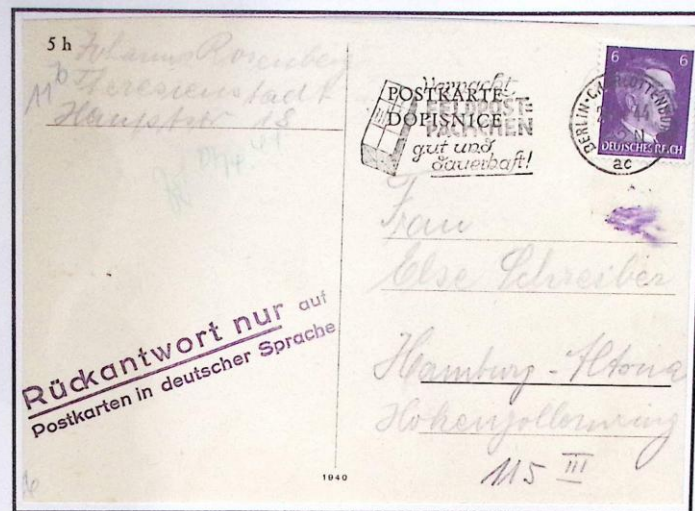 5 h Johanna Rosenberg
Theresienstadt
Hauptstr 18
11b
POSTKARTE
DOPISNICE
Verpackt
FELDPOST-
PÄCKCHEN
gut und
dauerhaft!
6 6
DEUTSCHES REICH
BERLIN-CHARLOTTENBURG
44
ac
Frau
Else Schreiber
Hamburg-Altona
Hohenzollernring
115 III
Rückantwort nur auf
Postkarten in deutscher Sprache
1940